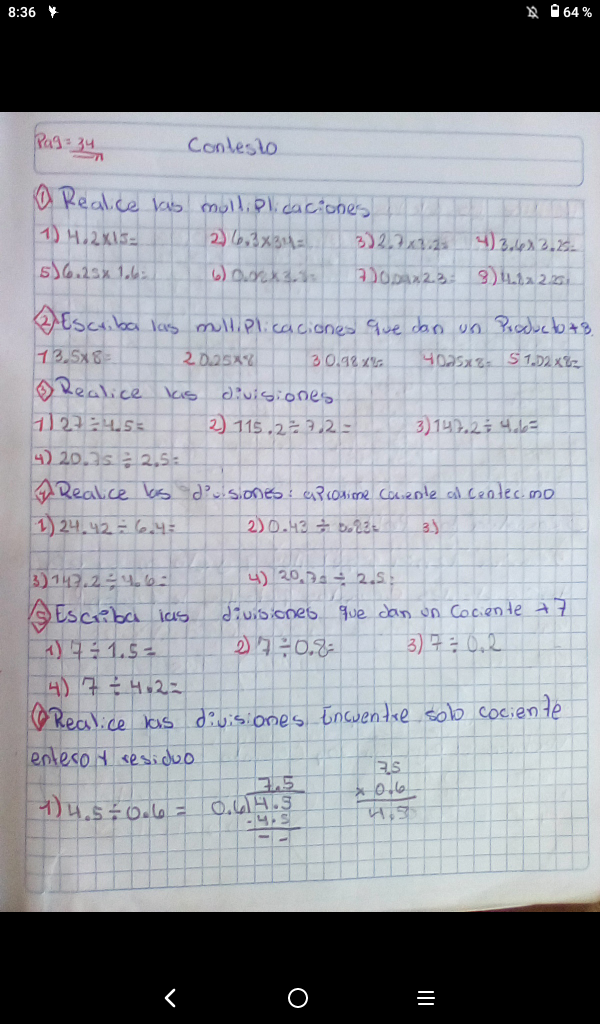 8:36 64 %
Pag = 34 Contesto
1 Realice las multiplicaciones
1) 4.2x15= 2) 6.3x34= 3) 2.7x3.2= 4) 3.6x3.25=
5) 6.25x1.6= 6) 7) 8)
2 Escriba las multiplicaciones que dan un Producto +8.
1 3.5x8= 2 0.25x8 3 0.98x8= 4 0.25x8= 5 1.02x8=
3 Realice las divisiones
1) 27÷4.5= 2) 115.2÷7.2= 3) 147.2÷4.6=
4) 20.75÷2.5=
4 Realice las divisiones: aproxime cociente al centecimo
1) 24.42÷6.4= 2) 0.43÷0.23= 3)
3) 147.2÷4.6= 4) 20.75÷2.5=
5 Escriba las divisiones que dan un cociente +7
1) 7÷1.5= 2) 7÷0.8= 3) 7÷0.2
4) 7÷4.2=
6 Realice las divisiones Encuentre solo cociente
entero y residuo
7.5 75
1) 4.5÷0.6= 0.6 4.5 x 0.6
-4.5 4.5
- -